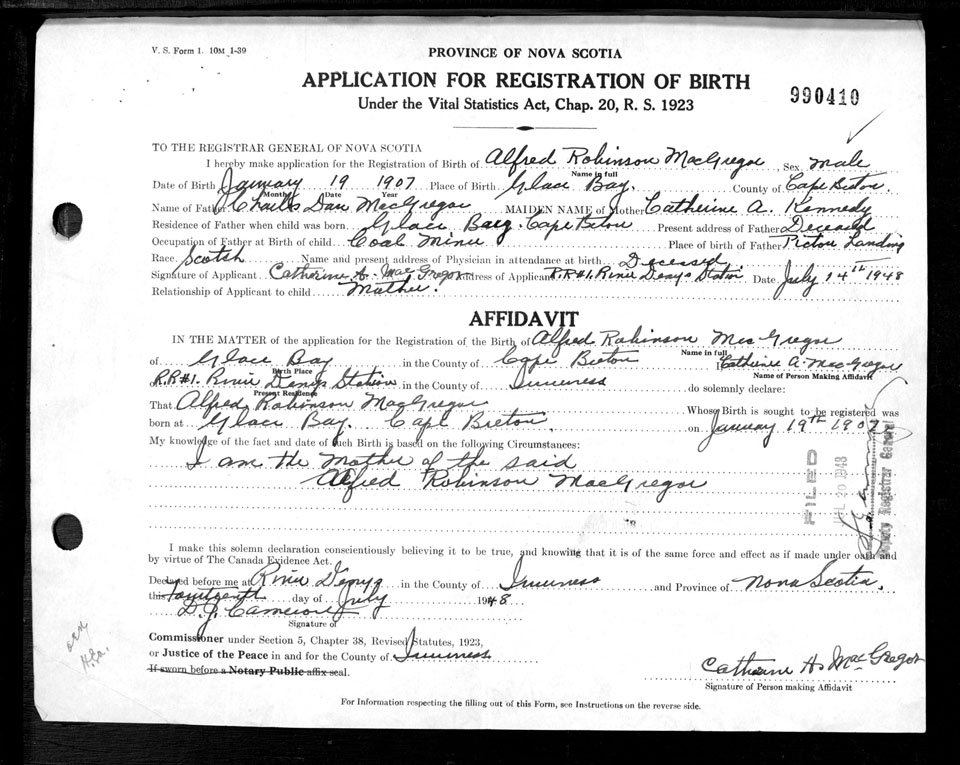 V. S. Form 1. 10M 1-39
PROVINCE OF NOVA SCOTIA
APPLICATION FOR REGISTRATION OF BIRTH
990410
Under the Vital Statistics Act, Chap. 20, R. S. 1923
TO THE REGISTRAR GENERAL OF NOVA SCOTIA
I hereby make application for the Registration of Birth of Alfred Robinson MacGregor Sex Male
Name in full
Date of Birth January 19 1907 Place of Birth Glace Bay. County of Cape Breton.
Month Date Year
Name of Father Charles Dan MacGregor MAIDEN NAME of Mother Catherine A. Kennedy
Residence of Father when child was born Glace Bay. Cape Breton Present address of Father Deceased
Occupation of Father at Birth of child Coal Miner Place of birth of Father Pictou Landing
Race Scotch Name and present address of Physician in attendance at birth Deceased
Signature of Applicant Catherine A. MacGregor Address of Applicant R.R#1. River Denys Station Date July 14th 1948
Relationship of Applicant to child Mother.
AFFIDAVIT
IN THE MATTER of the application for the Registration of the Birth of Alfred Robinson MacGregor
Name in full
of Glace Bay in the County of Cape Breton I Catherine A. MacGregor
Birth Place Name of Person Making Affidavit
of R.R#1. River Denys Station in the County of Inverness do solemnly declare:
Present Residence
That Alfred Robinson MacGregor Whose Birth is sought to be registered was
born at Glace Bay. Cape Breton. on January 19th 1907
My knowledge of the fact and date of such Birth is based on the following Circumstances:
I am the Mother of the said
Alfred Robinson MacGregor
FILED
JUL 20 1948
Deputy Registrar General
I make this solemn declaration conscientiously believing it to be true, and knowing that it is of the same force and effect as if made under oath and
by virtue of The Canada Evidence Act.
Declared before me at River Denys in the County of Inverness and Province of Nova Scotia.
this fourteenth day of July 1948
D.J. Cameron
Signature of
Commissioner under Section 5, Chapter 38, Revised Statutes, 1923,
or Justice of the Peace in and for the County of Inverness
If sworn before a Notary Public affix seal.
Catherine A. MacGregor
Signature of Person making Affidavit
For Information respecting the filling out of this Form, see Instructions on the reverse side.